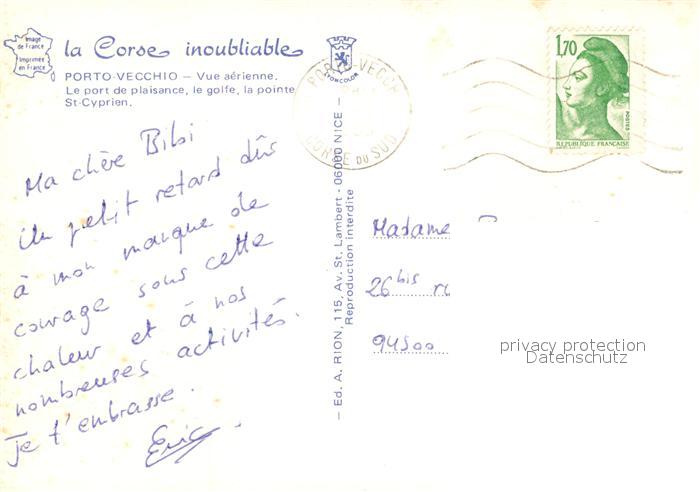 Image
de France
Imprimée
en France
la Corse inoubliable
PORTO-VECCHIO — Vue aérienne.
Le port de plaisance, le golfe, la pointe
St-Cyprien.
LYONCOLOR
PORTO-VECCH
CORSE DU SUD
1,70
POSTES
REPUBLIQUE FRANÇAISE
Ma chère Bibi
Un petit retard dûs
à mon manque de
courage sous cette
chaleur et à nos
nombreuses activités.
Je t'embrasse.
Eric
— Ed. A. RION, 115, Av. St. Lambert - 06000 NICE —
Reproduction interdite
Madame
26 bis
94500
privacy protection
Datenschutz